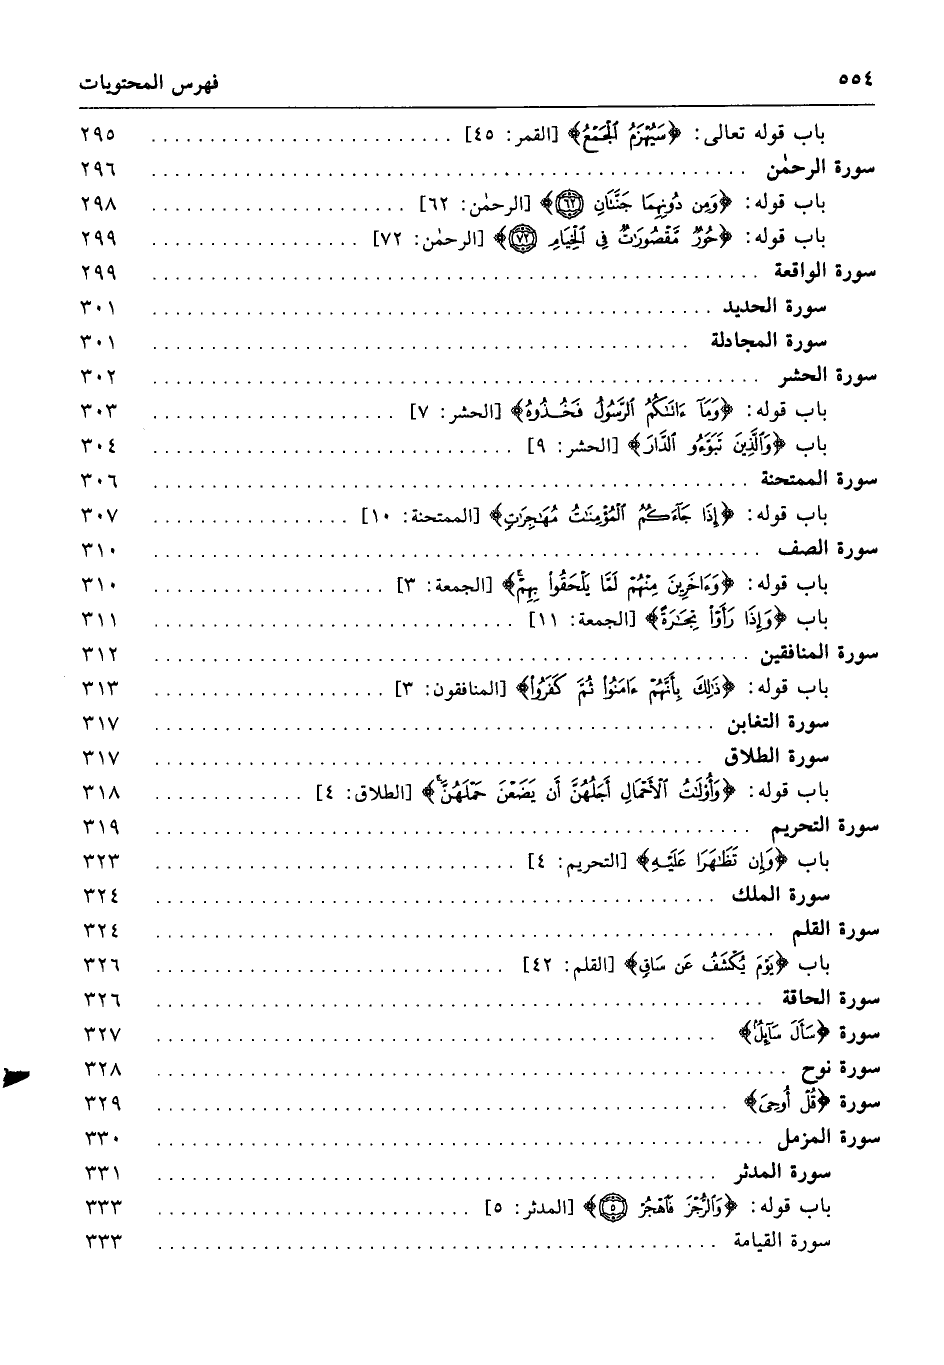 ٥٥٤ فهرس المحتويات
باب قوله تعالى: ﴿سَيُهْزَمُ ٱلْجَمْعُ﴾ [القمر: ٤٥] ........................ ٢٩٥
سورة الرحمٰن ........................ ٢٩٦
باب قوله: ﴿وَمِن دُونِهِمَا جَنَّتَانِ ٦٢﴾ [الرحمٰن: ٦٢] ........................ ٢٩٨
باب قوله: ﴿حُورٌ مَّقْصُورَٰتٌ فِى ٱلْخِيَامِ ٧٢﴾ [الرحمٰن: ٧٢] ........................ ٢٩٩
سورة الواقعة ........................ ٢٩٩
سورة الحديد ........................ ٣٠١
سورة المجادلة ........................ ٣٠١
سورة الحشر ........................ ٣٠٢
باب قوله: ﴿وَمَآ ءَاتَىٰكُمُ ٱلرَّسُولُ فَخُذُوهُ﴾ [الحشر: ٧] ........................ ٣٠٣
باب ﴿وَٱلَّذِينَ تَبَوَّءُو ٱلدَّارَ﴾ [الحشر: ٩] ........................ ٣٠٤
سورة الممتحنة ........................ ٣٠٦
باب قوله: ﴿إِذَا جَآءَكُمُ ٱلْمُؤْمِنَٰتُ مُهَٰجِرَٰتٍ﴾ [الممتحنة: ١٠] ........................ ٣٠٧
سورة الصف ........................ ٣١٠
باب قوله: ﴿وَءَاخَرِينَ مِنْهُمْ لَمَّا يَلْحَقُوا۟ بِهِمْ ۚ﴾ [الجمعة: ٣] ........................ ٣١٠
باب ﴿وَإِذَا رَأَوْا۟ تِجَٰرَةً﴾ [الجمعة: ١١] ........................ ٣١١
سورة المنافقين ........................ ٣١٢
باب قوله: ﴿ذَٰلِكَ بِأَنَّهُمْ ءَامَنُوا۟ ثُمَّ كَفَرُوا۟﴾ [المنافقون: ٣] ........................ ٣١٣
سورة التغابن ........................ ٣١٧
سورة الطلاق ........................ ٣١٧
باب قوله: ﴿وَأُو۟لَٰتُ ٱلْأَحْمَالِ أَجَلُهُنَّ أَن يَضَعْنَ حَمْلَهُنَّ ۚ﴾ [الطلاق: ٤] ........................ ٣١٨
سورة التحريم ........................ ٣١٩
باب ﴿وَإِن تَظَٰهَرَا عَلَيْهِ﴾ [التحريم: ٤] ........................ ٣٢٣
سورة الملك ........................ ٣٢٤
سورة القلم ........................ ٣٢٤
باب ﴿يَوْمَ يُكْشَفُ عَن سَاقٍ﴾ [القلم: ٤٢] ........................ ٣٢٦
سورة الحاقة ........................ ٣٢٦
سورة ﴿سَأَلَ سَآئِلٌۢ﴾ ........................ ٣٢٧
سورة نوح ........................ ٣٢٨
سورة ﴿قُلْ أُوحِىَ﴾ ........................ ٣٢٩
سورة المزمل ........................ ٣٣٠
سورة المدثر ........................ ٣٣١
باب قوله: ﴿وَٱلرُّجْزَ فَٱهْجُرْ ٥﴾ [المدثر: ٥] ........................ ٣٣٣
سورة القيامة ........................ ٣٣٣